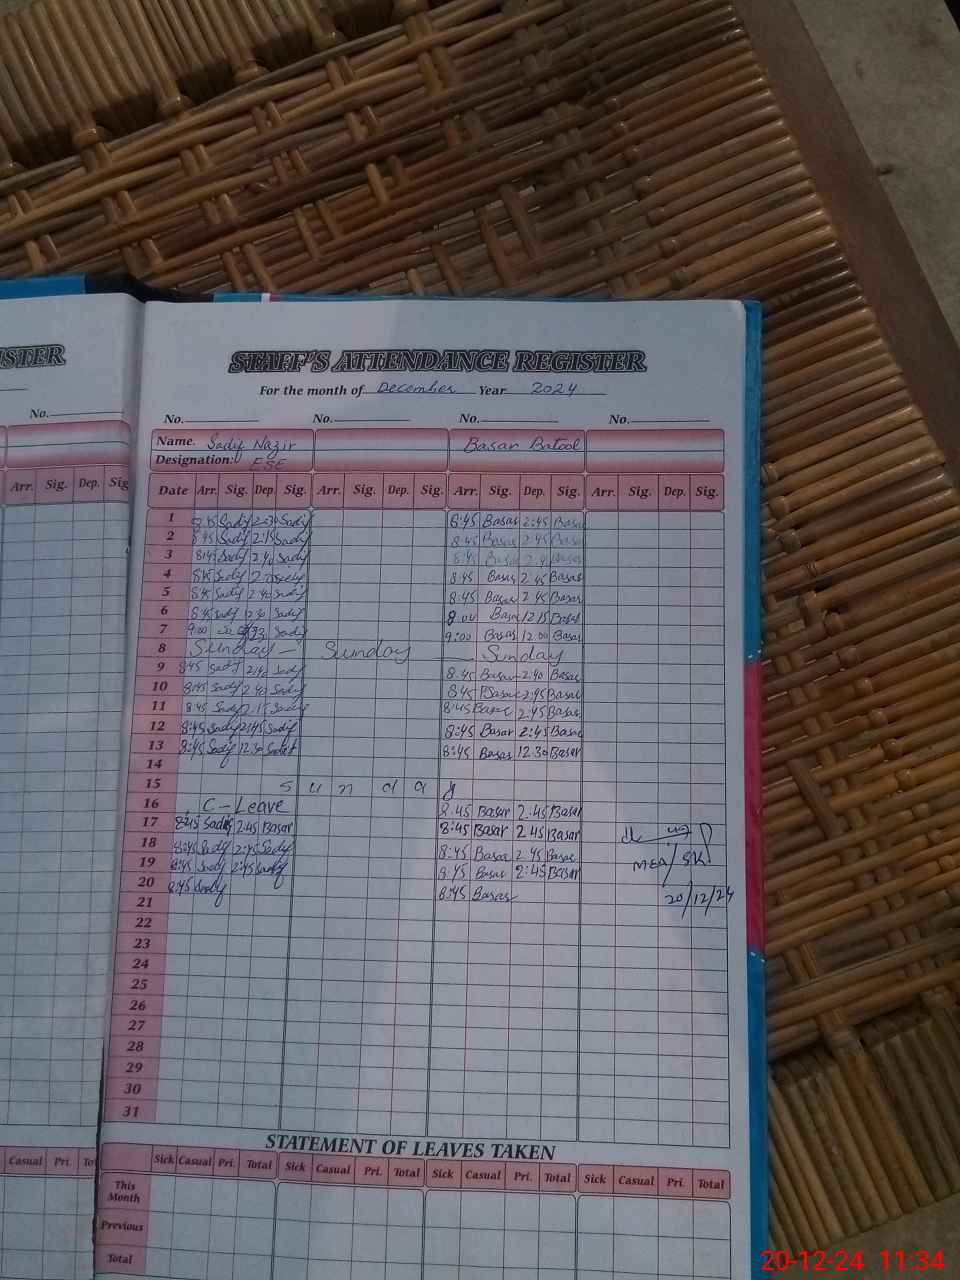 STER
STAFF'S ATTENDANCE REGISTER
For the month of December Year 2024
No. No. No. No. No.
Name. Sadif Nazir Basar Batool
Designation: ESE
Arr. Sig. Dep. Sig
Date Arr. Sig. Dep. Sig. Arr. Sig. Dep. Sig. Arr. Sig. Dep. Sig. Arr. Sig. Dep. Sig.
1 8:45 Sadif 2:30 Sadif 8:45 Basar 2:45 Basar
2 8:45 Sadif 2:15 Sadif 8:45 Basar 2:45 Basar
3 8:45 Sadif 2:40 Sadif 8:45 Basar Basar
4 8:45 Sadif 8:45 Basar 2:45 Basar
5 8:45 Sadif 2:40 Sadif 8:45 Basar 2:45 Basar
6 8:45 Sadif 12:30 Sadif 8:00 Basar 12:15 Basar
7 9:00 Sadif 9:00 Basar 12:00 Basar
8 Sunday - Sunday - Sunday
9 8:45 Sadif 2:40 Sadif 8:45 Basar 2:40 Basar
10 8:45 Sadif 2:40 Sadif 8:45 Basar 2:45 Basar
11 8:45 Sadif 2:15 Sadif 8:45 Basar 2:45 Basar
12 8:45 Sadif 2:45 Sadif 8:45 Basar 2:45 Basar
13 8:45 Sadif 12:30 Sadif 8:45 Basar 12:30 Basar
14
15 Sunday
16 C-Leave 8:45 Basar 2:45 Basar
17 8:45 Sadif 2:45 Basar 8:45 Basar 2:45 Basar
18 8:45 Sadif 2:45 Sadif 8:45 Basar 2:45 Basar
19 8:45 Sadif 2:45 Sadif 8:45 Basar 2:45 Basar
MEA/SK
20 8:45 Sadif 8:45 Basar
20/12/24
21
22
23
24
25
26
27
28
29
30
31
STATEMENT OF LEAVES TAKEN
Casual Pri. To
Sick Casual Pri. Total Sick Casual Pri. Total Sick Casual Pri. Total Sick Casual Pri. Total
This Month
Previous
Total
20-12-24 11:34